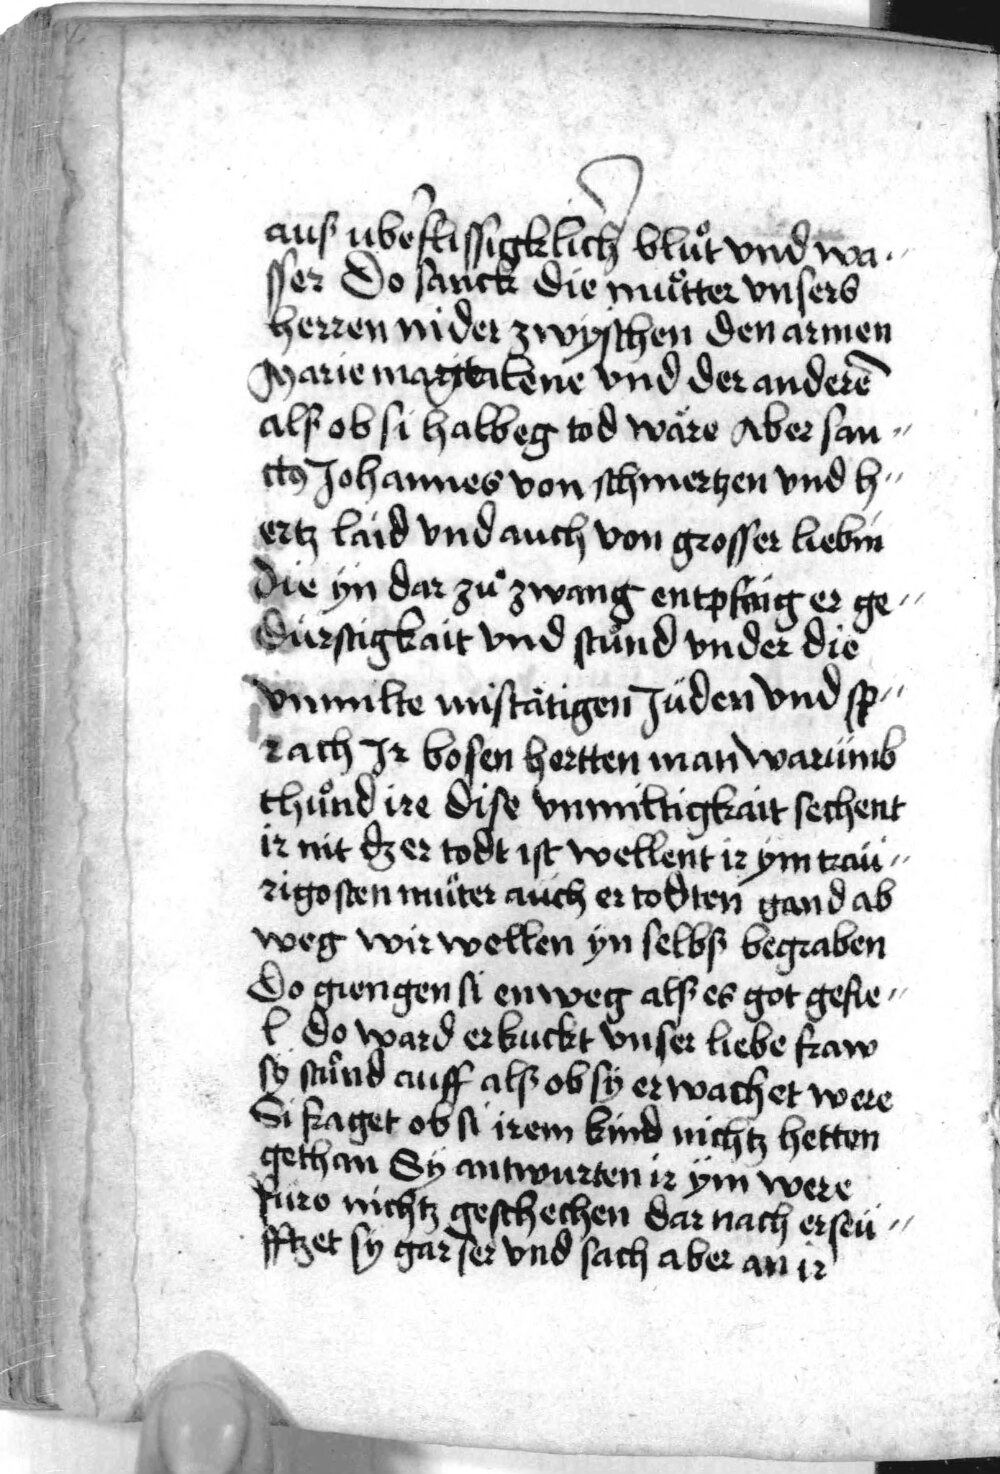 auſz ubeꝛflissigklich̄ blůt vnd wa„
sser Do sanck die můtter vnsers
herren nider zwÿschen den armen
Marie magtalene vnd der andere͂
alſz ob si halbeg tod wäre Aber san„
ctꝰ Johannes von schmertzen vnd h„
ertz laid vnd auch von grosser liebin
die ÿn dar zů zwang entpfaig er ge„
dürstigkait vnd stůnd vnder die
vnmilte mistätigen Jüden vnd sp„
rach Ir bosen hertten man warümb
thůnd ire dise vnmiltigkait sechent
ir nit dz er todt ist wellent ir ÿm traü„
rigosten můter auch er todten gand ab
weg wir wellen ÿn selbſz begraben
Do giengen si enweg alſz es got gefie„
l Do ward erkuckt vnser liebe fraw
sÿ stůnd auff alſz ob sÿ erwachet were
Si fraget ob si irem kind nichtz hetten
gethan Sÿ antwurten ir ÿm were
füro nichtz geschechen dar nach erseü„
fftzet sÿ gar ser vnd sach aber an ir